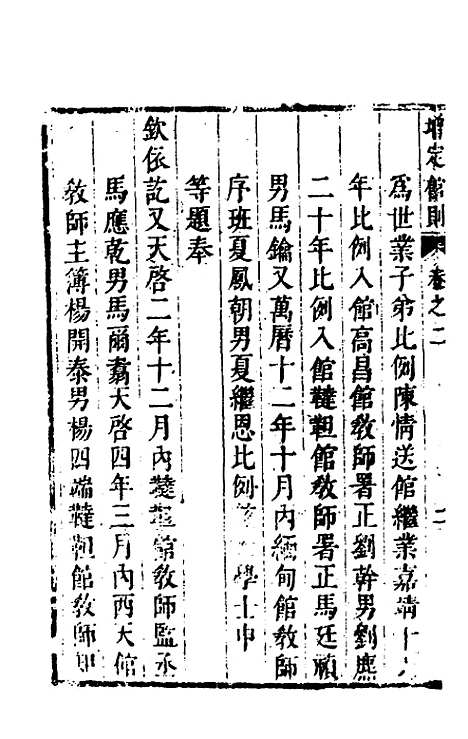 增定館則 卷之二 二
爲世業子弟比例陳情送館繼業嘉靖十
年比例入館高昌館教師署正劉幹男劉應
二十年比例入館韃靼館教師署正馬廷禎
男馬鑰又萬曆十二年十月內緬甸館教師
序班夏鳳朝男夏繼恩比例 學士申
等題奉
欽依訖又天啓二年十二月內韃靼館教師監丞
馬應乾男馬爾翥天啓四年三月內西天館
教師主簿楊開泰男楊四端韃靼館教師